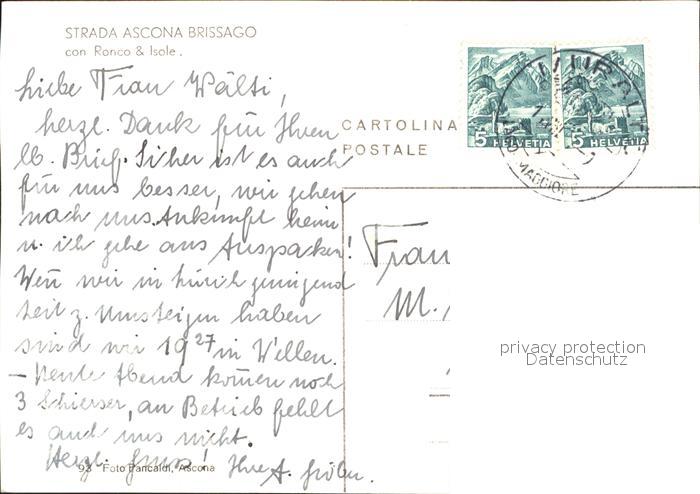 STRADA ASCONA BRISSAGO
con Ronco & Isole.
Liebe Frau Wälti,
herzl. Dank für Ihren
lb. Brief. Sicher ist es auch
für uns besser, wir gehen
nach uns. Ankunft heim
u. ich gehe ans Auspacken!
Wen̄ wir in Zürich genügend
Zeit z. Umsteigen haben
sind wir 19 27 in Wellen.
– Heute Abend kom̄en noch
3 Schierser, an Betrieb fehlt
es auch uns nicht.
Herzl. Gruss! Ihre A.
93 Foto Pancaldi, Ascona
CARTOLINA
POSTALE
5 HELVETIA
5 HELVETIA
MAGGIORE
Frau
M.
privacy protection
Datenschutz